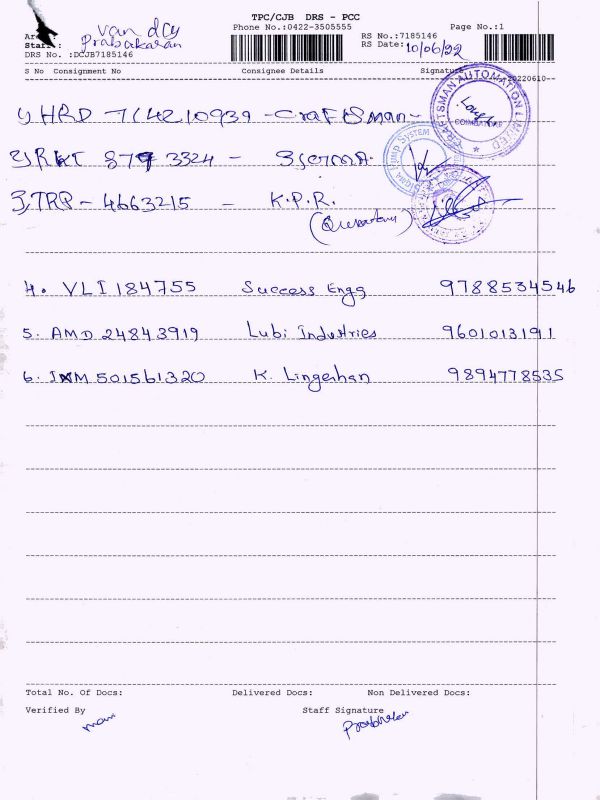 TPC/CJB DRS - PCC
Phone No.:0422-3505555 Page No.:1
van dcy
Prabakaran
Staff:
RS No.:7185146
RS Date: 10/06/22
DRS No. :DCJB7185146
S No Consignment No Consignee Details Signature
20220610--
1) HRD 714210939 - Craftsman -
CRAFTSMAN AUTOMATION LIMITED
COIMBATORE
2) RKT 879 3324 -
PUMP SYSTEM
3) TRP - 4663215 - K.P.R.
4. VLI 184755 Success Engg 9788534546
5. AMD 24843919 Lubi Industries 9601013191
6. IXM 501561320 K. Lingeshan 9894778535
Total No. Of Docs: Delivered Docs: Non Delivered Docs:
Verified By Staff Signature
mani